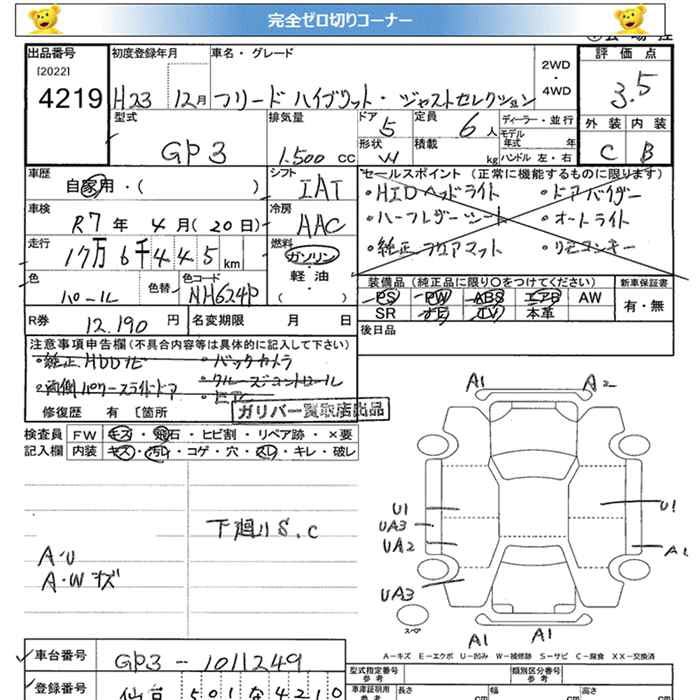 完全ゼロ切りコーナー
出品番号 初度登録年月 車名・グレード 評価点
[2022] 2WD・4WD
4219 H23 12月 フリード ハイブリット・ジャストセレクション 3.5
型式 排気量 ドア 5 定員 6人 ディーラー・並行 外装 内装
GP3 1.500 cc 形状 W 積載 kg モデル年式 年 C B
ハンドル 左・右
車歴 自家用・( ) シフト IAT セールスポイント(正常に機能するものに限ります)
・HIDヘッドライト ・ドアバイザー
車検 R7年 4月(20日) 冷房 AAC ・ハーフレザーシート ・オートライト
走行 17万6千445km 燃料 ガソリン・軽油・( ) ・純正フロアマット ・リモコンキー
色 パール 色替 色コード NH624P 装備品(純正品に限り○をつけてください) 新車保証書
PS PW ABS エアB AW 有・無
R券 12.190円 名変期限 月 日 SR ナビ TV 本革
後日品
注意事項申告欄(不具合内容等は具体的に記入して下さい)
・純正HDDナビ ・バックカメラ
・両側パワースライドドア ・クルーズコントロール
・ビルトETC
修復歴 有 [箇所 ガリバー買取店出品
検査員 FW キズ・飛石・ヒビ割・リペア跡・×要
記入欄 内装 キズ・汚レ・コゲ・穴・スレ・キレ・破レ
A1 A2
下廻りS.C
U1 U1
UA3
UA2 A1
A・U
A・Wキズ
UA3
スペア
A1 A1
A-キズ E-エクボ U-凹み W-補修跡 S-サビ C-腐食 XX-交換済
車台番号 GP3-1011249 型式指定番号 参考 類別区分番号 参考
登録番号 仙台 501 な 4210 車庫証明用 参考 長さ cm 幅 cm 高さ cm